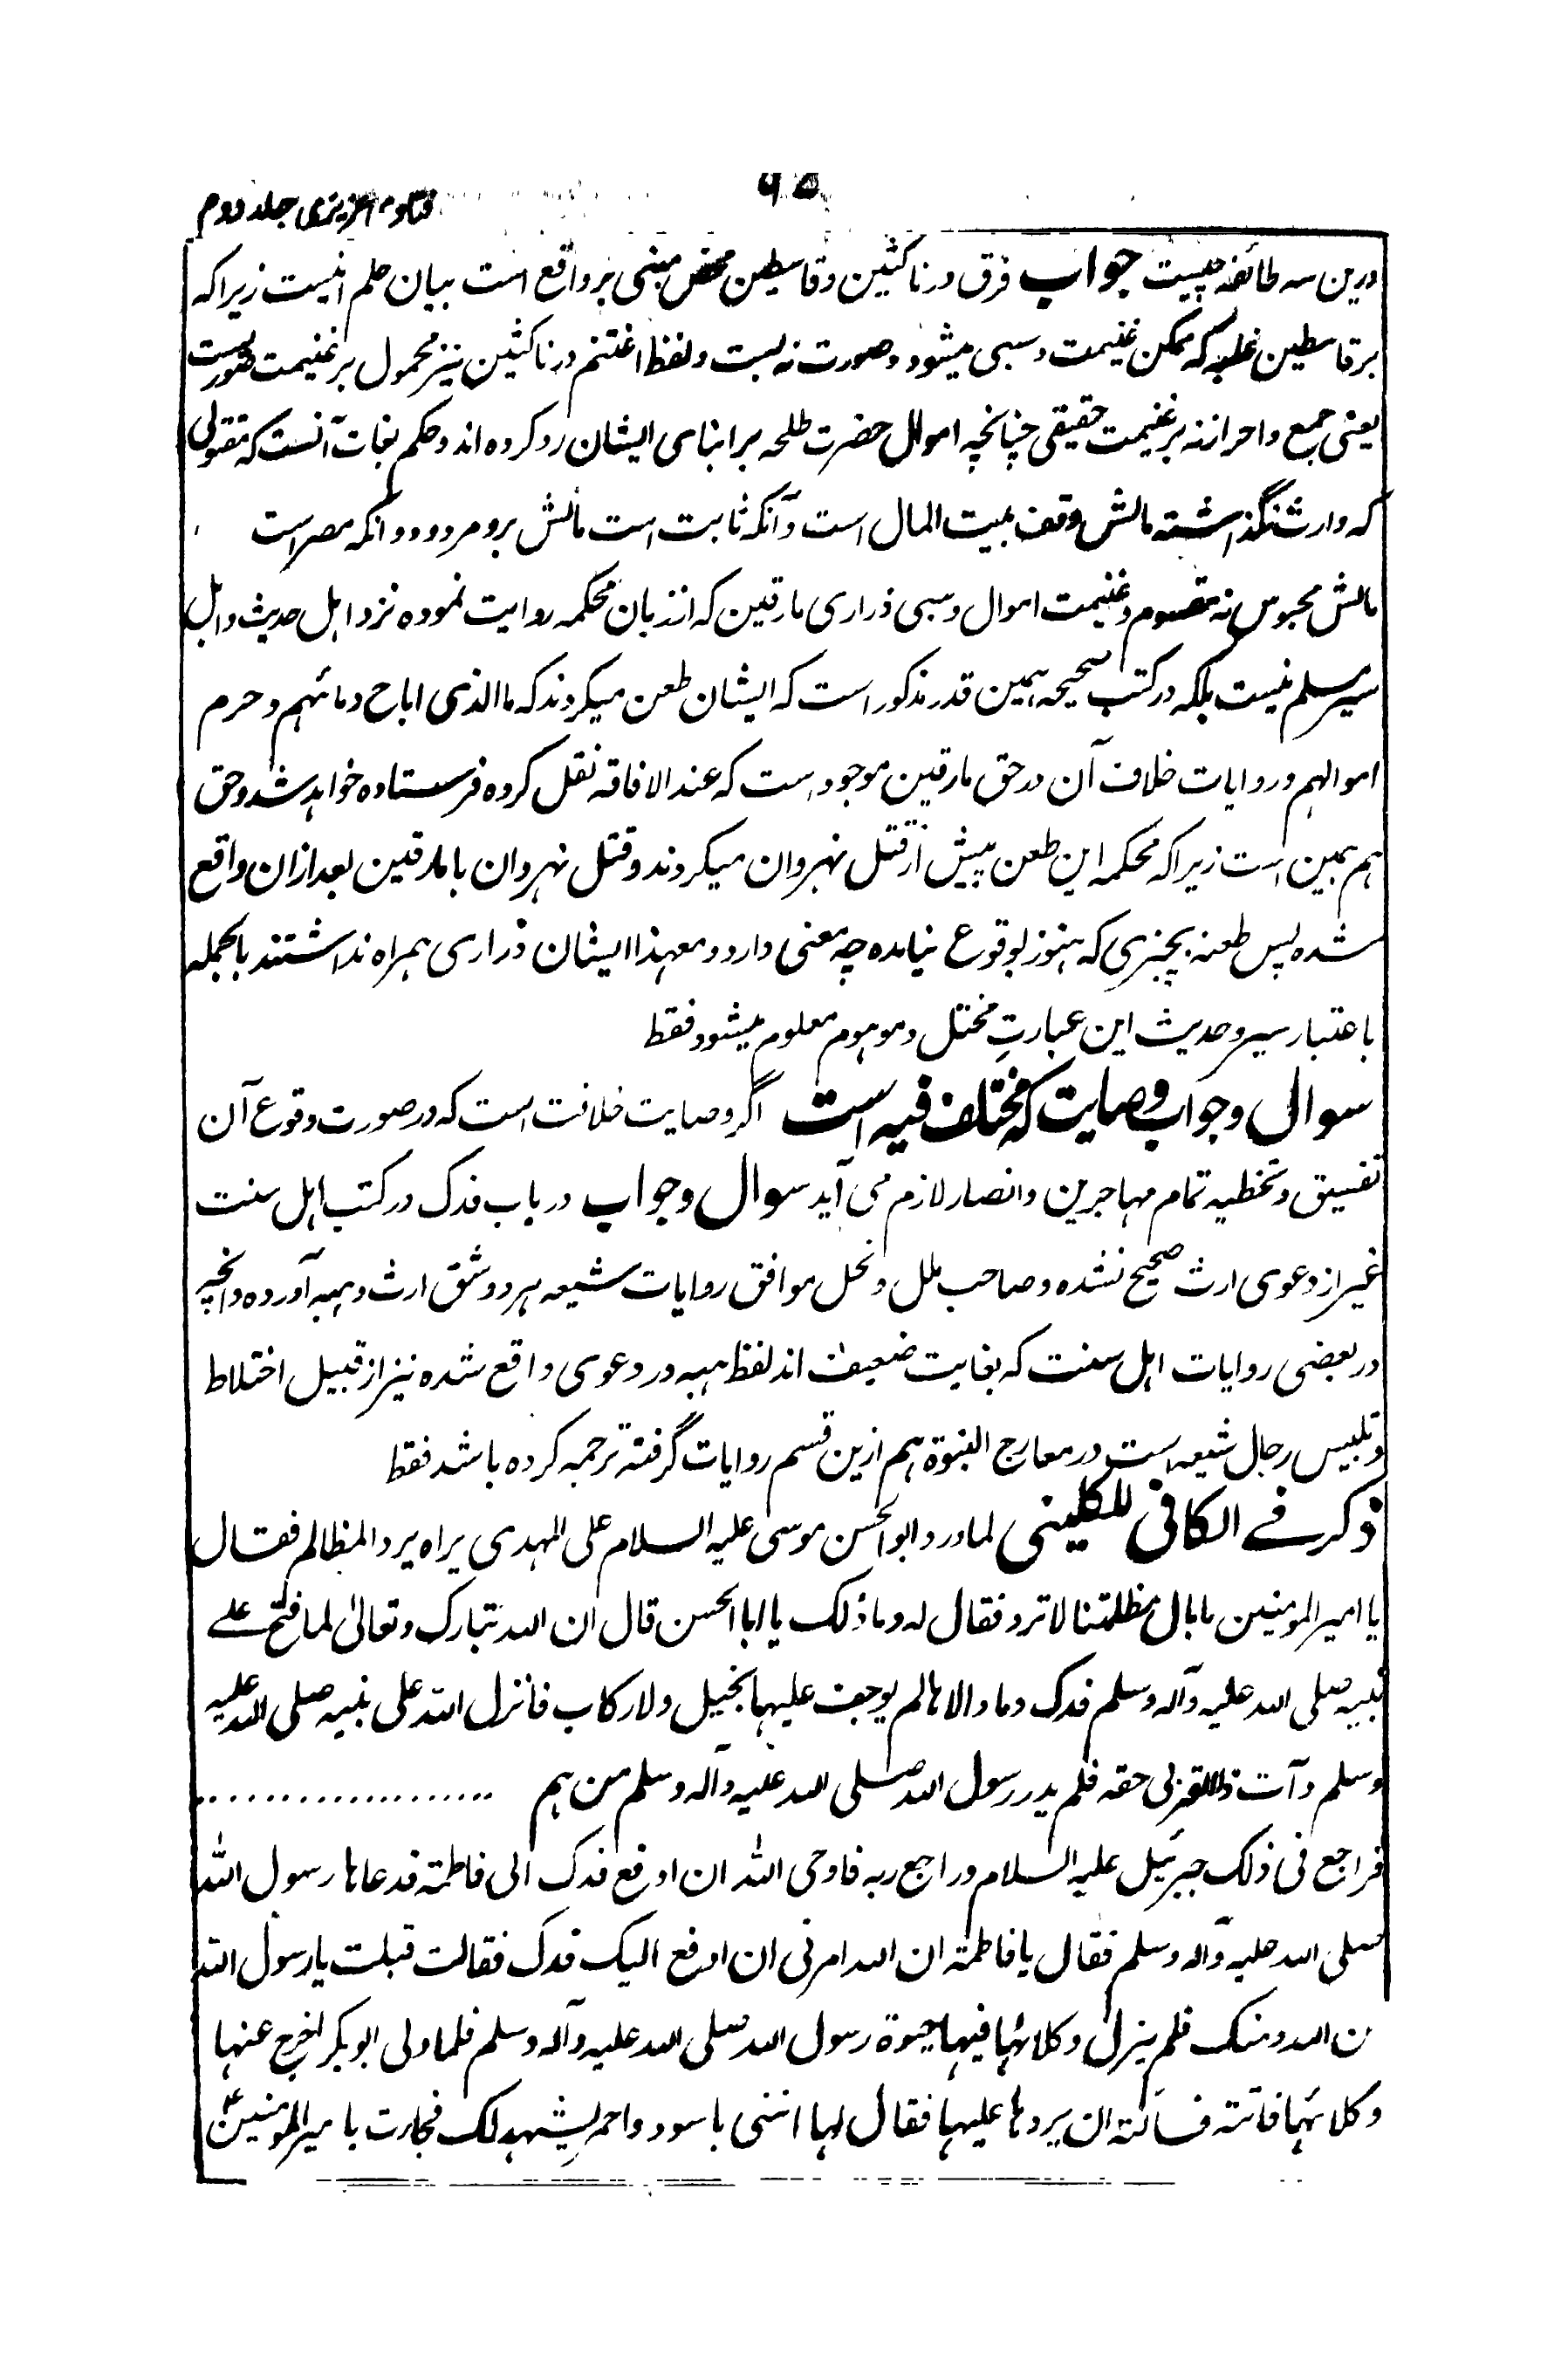 ۹۵
فتاوے عزیزی جلد دوم
درین سہ طائفہ چیست جواب فرق در ناکثین و قاسطین محض مبنی بر واقع است بیان حلم انیست زیراکہ
بر قاسطین غلبہ کہ ممکن غنیمت و سبی میشود و صورت نہ بست و لفظ اغتنم در ناکثین نیز محمول بر غنیمت صورت
یعنی جمع و احراز نہ بر غنیمت حقیقی چنانچہ اموال حضرت طلحہ بر ابنای ایشان رد کردہ اند و حکم بغات آنست کہ مقتولی
کہ وارث نگذاشتہ مالش وقف بیت المال است و آنکہ ثابت است مالش برو مردود و آنکہ مصر است
مالش محبوس نہ مقسوم و غنیمت اموال و سبی ذراری مارقین کہ از زبان محکمہ روایت نمودہ نزد اہل حدیث و اہل
سیر مسلم نیست بلکہ در کتب صحیحہ ہمین قدر مذکور است کہ ایشان طعن میکردند کہ ما الذی اباح دمائہم و حرم
اموالہم و روایات خلاف آن در حق مارقین موجود است کہ عند الافاقہ نقل کردہ فرستادہ خواہد شد و حق
ہم ہمین است زیراکہ محکمہ این طعن پیش از قتل نہروان میکردند و قتل نہروان با مارقین بعد ازان واقع
شدہ پس طعنہ بچیزی کہ ہنوز بوقوع نیامدہ چہ معنی دارد و معہذا ایشان ذراری ہمراہ نداشتند بالجملہ
باعتبار سیر و حدیث این عبارتِ مختل و موہوم معلوم میشود فقط
سوال و جواب وصایت کہ مختلف فیہ است اگر وصایت خلافت است کہ در صورت وقوع آن
تفسیق و تخطیہ تمام مہاجرین و انصار لازم می آید سوال و جواب در باب فدک در کتب اہل سنت
غیر از دعوی ارث صحیح نشدہ و صاحب ملل و نحل موافق روایات شیعہ ہر دو شق ارث و ہبہ آوردہ و آنچہ
در بعضی روایات اہل سنت کہ بغایت ضعیف اند لفظ ہبہ در دعوی واقع شدہ نیز از قبیل اختلاط
و تلبیس رجال شیعہ است در معارج النبوۃ ہم ازین قسم روایات گرفتہ ترجمہ کردہ باشد فقط
ذکر فے الکافی للکلینی لما ورد ابو الحسن موسی علیہ السلام علی المہدی یراہ یرد المظالم فقال
یا امیر المومنین ما بال مظلمتنا لا ترد فقال لہ و ما ذلک یا ابا الحسن قال ان اللہ تبارک و تعالیٰ لما فتح علے
نبیہ صلی اللہ علیہ و آلہ و سلم فدک و ما والاہا لم یوجف علیہا بخیل ولا رکاب فانزل اللہ علی نبیہ صلی اللہ علیہ
وسلم و آت ذا القربی حقہ فلم یدر رسول اللہ صلی اللہ علیہ و آلہ وسلم من ہم ....................
فراجع فی ذلک جبرئیل علیہ السلام و راجع ربہ فاوحی اللہ ان ادفع فدک الی فاطمۃ فدعاہا رسول اللہ
صلی اللہ علیہ و آلہ وسلم فقال یا فاطمۃ ان اللہ امرنی ان ادفع الیک فدک فقالت قبلت یا رسول اللہ
من اللہ و منک فلم یزل وکلائہا فیہا حیوۃ رسول اللہ صلی اللہ علیہ و آلہ وسلم فلما ولی ابو بکر اخرج عنہا
وکلائہا فاتتہ فسالتہ ان یردہا علیہا فقال لہا ائتنی باسود و احمر یشہد لک فجاءت بامیر المومنینؑ